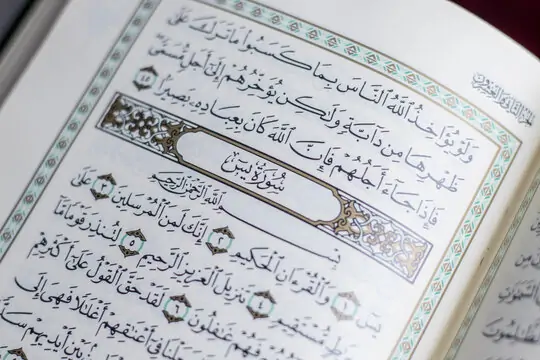 الجزء الثاني والعشرون
وَلَوْ يُؤَاخِذُ ٱللَّهُ ٱلنَّاسَ بِمَا كَسَبُوا۟ مَا تَرَكَ عَلَىٰ
ظَهْرِهَا مِن دَآبَّةٍ وَلَٰكِن يُؤَخِّرُهُمْ إِلَىٰٓ أَجَلٍ مُّسَمًّى
فَإِذَا جَآءَ أَجَلُهُمْ فَإِنَّ ٱللَّهَ كَانَ بِعِبَادِهِۦ بَصِيرًا ٤٥
سُورَةُ يسٓ
بِسْمِ ٱللَّهِ ٱلرَّحْمَٰنِ ٱلرَّحِيمِ
يسٓ ١ وَٱلْقُرْءَانِ ٱلْحَكِيمِ ٢ إِنَّكَ لَمِنَ ٱلْمُرْسَلِينَ ٣ عَلَىٰ
صِرَٰطٍ مُّسْتَقِيمٍ ٤ تَنزِيلَ ٱلْعَزِيزِ ٱلرَّحِيمِ ٥ لِتُنذِرَ قَوْمًا مَّآ
فَهُمْ غَٰفِلُونَ ٦ لَقَدْ حَقَّ ٱلْقَوْلُ عَلَىٰٓ أَكْثَرِهِمْ
جَعَلْنَا فِىٓ أَعْنَٰقِهِمْ أَغْلَٰلًا فَهِىَ إِلَى
بَيْنِ أَيْدِيهِمْ سَدًّا